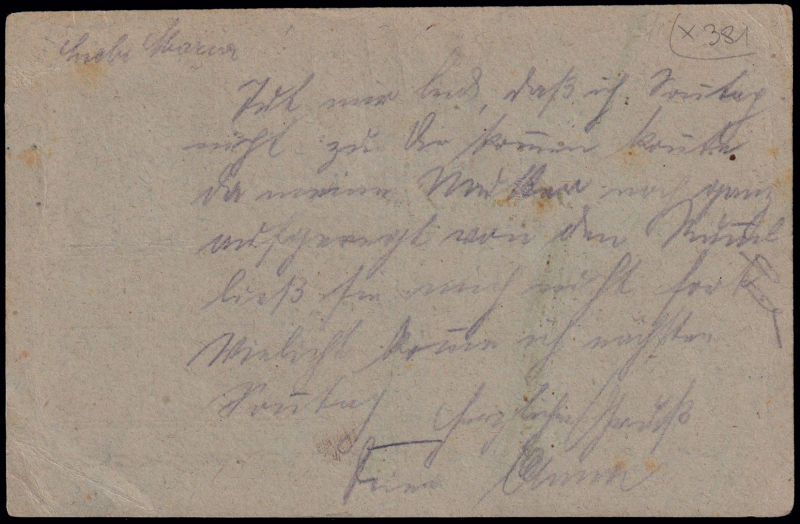 x 381
Liebe Maria
Tut mir leid, daß ich Sontag
nicht zu Dir kommen konte
da meine Mutter noch ganz
aufgeregt von den
ließ sie mich nicht fort
Vieleicht komme ich nächsten
Sontag herzliche Grüß
Deine Anna